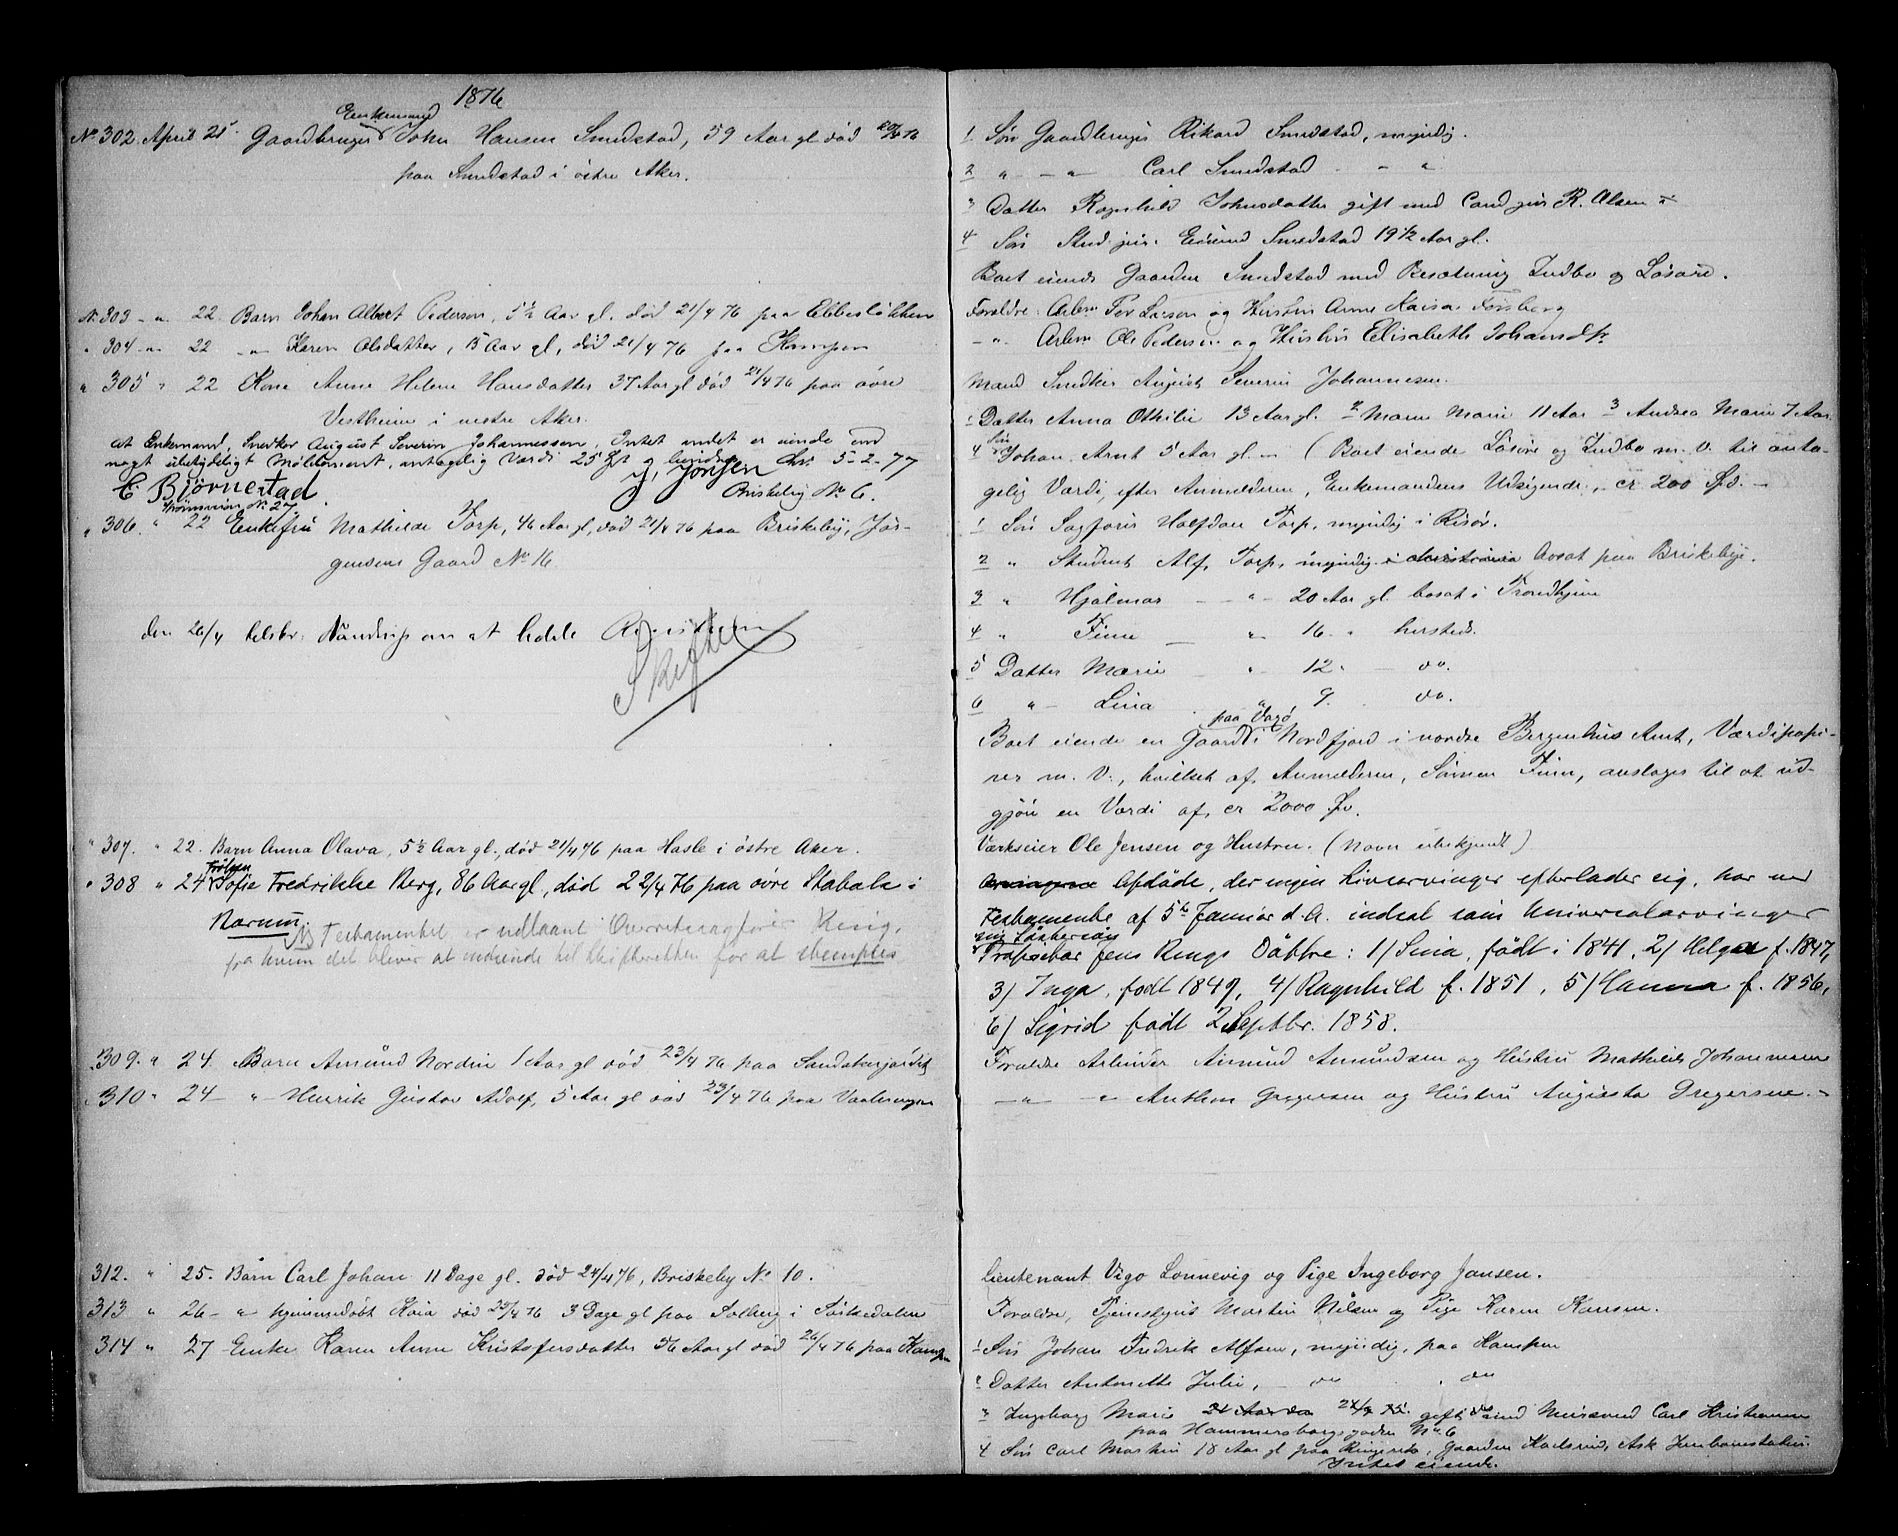 1876
Enkemand
No 302. April 21. Gaardbruger John Hansen Smedstad, 59 Aar gl død 20/4 76
paa Smedstad i østre Aker.
No 303 - " 22. Barn Johan Albert Pedersen, 5 1/2 Aar gl. død 21/4 76 paa Ebbesløkken
" 304 - " 22 - " Karen Olsdatter, 15 Aar gl, død 21/4 76 paa Kampen
" 305 " 22 Kone Anne Helene Hansdatter 37 Aar gl død 21/4 76 paa øvre
Vestheim i vestre Aker.
at Enkemand, Snedker August Severin Johannessen, Intet andet er eiende end
noget ubetydeligt Møblement, antagelig Værdi 25
Chr. 5-2-77
C. Bjørnestad J. Jonsen
Briskeby No 6.
" 306. " 22 Enkefru Mathilde Torp, 46 Aar gl, død 21/4 76 paa Briskeby, Jør-
gensens Gaard No 16
den 26/4 om at holde
Skifte
" 307. " 22. Barn Anna Olava, 5 1/2 Aar gl., død 21/4 76 paa Hasle i østre Aker.
Frøken
" 308 " 24 Sofie Fredrikke Berg, 86 Aar gl, død 22/4 76 paa øvre Stabæk i
Bærum.
Testamentet er udlaant Overretssagfører Ring,
fra hvem det bliver at indsende til Skifteretten for at stemples
309. " 24. Barn Amund Nordin 1 Aar gl død 23/4 76 paa Sandakerjordet
310 " 24 - " - Henrik Gustav Adolf, 5 Aar gl død 23/4 76 paa Vaalerengen
312. " 25. Barn Carl Johan 11 Dage gl. død 24/4 76, Briskeby No 10.
313 " 26 - " hjemmedøbt død 25/4 76 3 Dage gl paa Solberg i Sørkedalen
314 " 27 Enke Karen Anne Kristofersdatter 56 Aar gl død 26/4 76 paa Kampen
1 Søn Gaardbruger Rikard Smedstad, myndig.
2 " - " Carl Smedstad - "
3 Datter Ragnhild Johnsdatter gift med Cand jur R. Olsen
4 Søn Stud. jur. Eivind Smedstad 19 1/2 Aar gl.
Boet eiende Gaarden Smedstad med Besætning Indbo og Løsøre.
Forældre: Arbm Per Larsen og Hustru Anne Kaisa Forsberg
- " - Arbm Ole Pedersen og Hustru Elisabeth Johansdtr
Mand Snedker August Severin Johannesen.
1 Datter Anna Othilie 13 Aar gl. 2 Maren Marie 11 Aar 3 Andrea Marie 7 Aar
4 Søn Johan Arnt 5 Aar gl. - (Boet eiende Løsøre og Indbo m. v. til anta-
gelig Værdi, efter Anmelderen, Enkemandens Udsigende, cr 200 Spd. -
1 Søn Sagfører Halfdan Torp, myndig i Risør.
2 " Student Alf Torp, myndig i Christiania bosat paa Briskeby.
3 " Hjalmar - " - 20 Aar gl. bosat i Trondhjem
4 " Finn " 16 " hersteds.
5 Datter Marie " 12 " do.
6 " Lina " 9. do.
paa Vaagø
Boet eiende en Gaard i Nordfjord i nordre Bergenhus Amt, Værdipapi-
rer m. v., hvilket af Anmelderen, Sønnen Finn, anslages til at ud-
gjøre en Værdi af cr 2000 Spd.
Værkseier Ole Jensen og Hustru. (Navn ubekjendt)
Arvingerne Afdøde, der ingen Livsarvinger efterlader sig, har ved
Testamente af 5te Januar d. A. indsat som Universalarvinger
sin Søstersøn
Jens Rings Døttre: 1) Sina, født i 1841, 2) Helga f. 1847,
3) Inga, født 1849, 4) Ragnhild f. 1851, 5) Hanna f. 1856,
6) Sigrid født 2 Septbr. 1858.
Forældre Arbeider Amund Amundsen og Hustru Mathilde Johannesen
- " - " Anthon Gregersen og Hustru Augusta Gregersen. -
Lieutenant Vigo Lonnevig og Pige Ingeborg Jansen.
Forældre, Tjenestegut Martin Nilsen og Pige Karen Hansen.
1 Søn Johan Fredrik Alfsen, myndig, paa Kampen
2 Datter Antonette Julie, do do
3 Ingeborg Marie 21 Aar do gift med Carl Kristiansen
paa Hammersborggaden No 6
4 Søn Carl Martin 18 Aar gl paa Ringerike, Gaarden Ask Jernbanestation
Intet eiende.